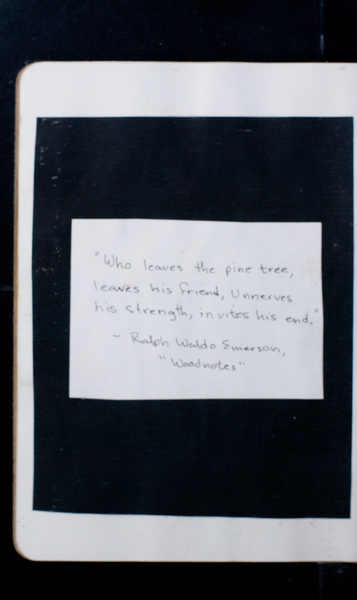 "Who leaves the pine tree,
leaves his friend, Unnerves
his strength, invites his end."
- Ralph Waldo Emerson,
"Woodnotes"